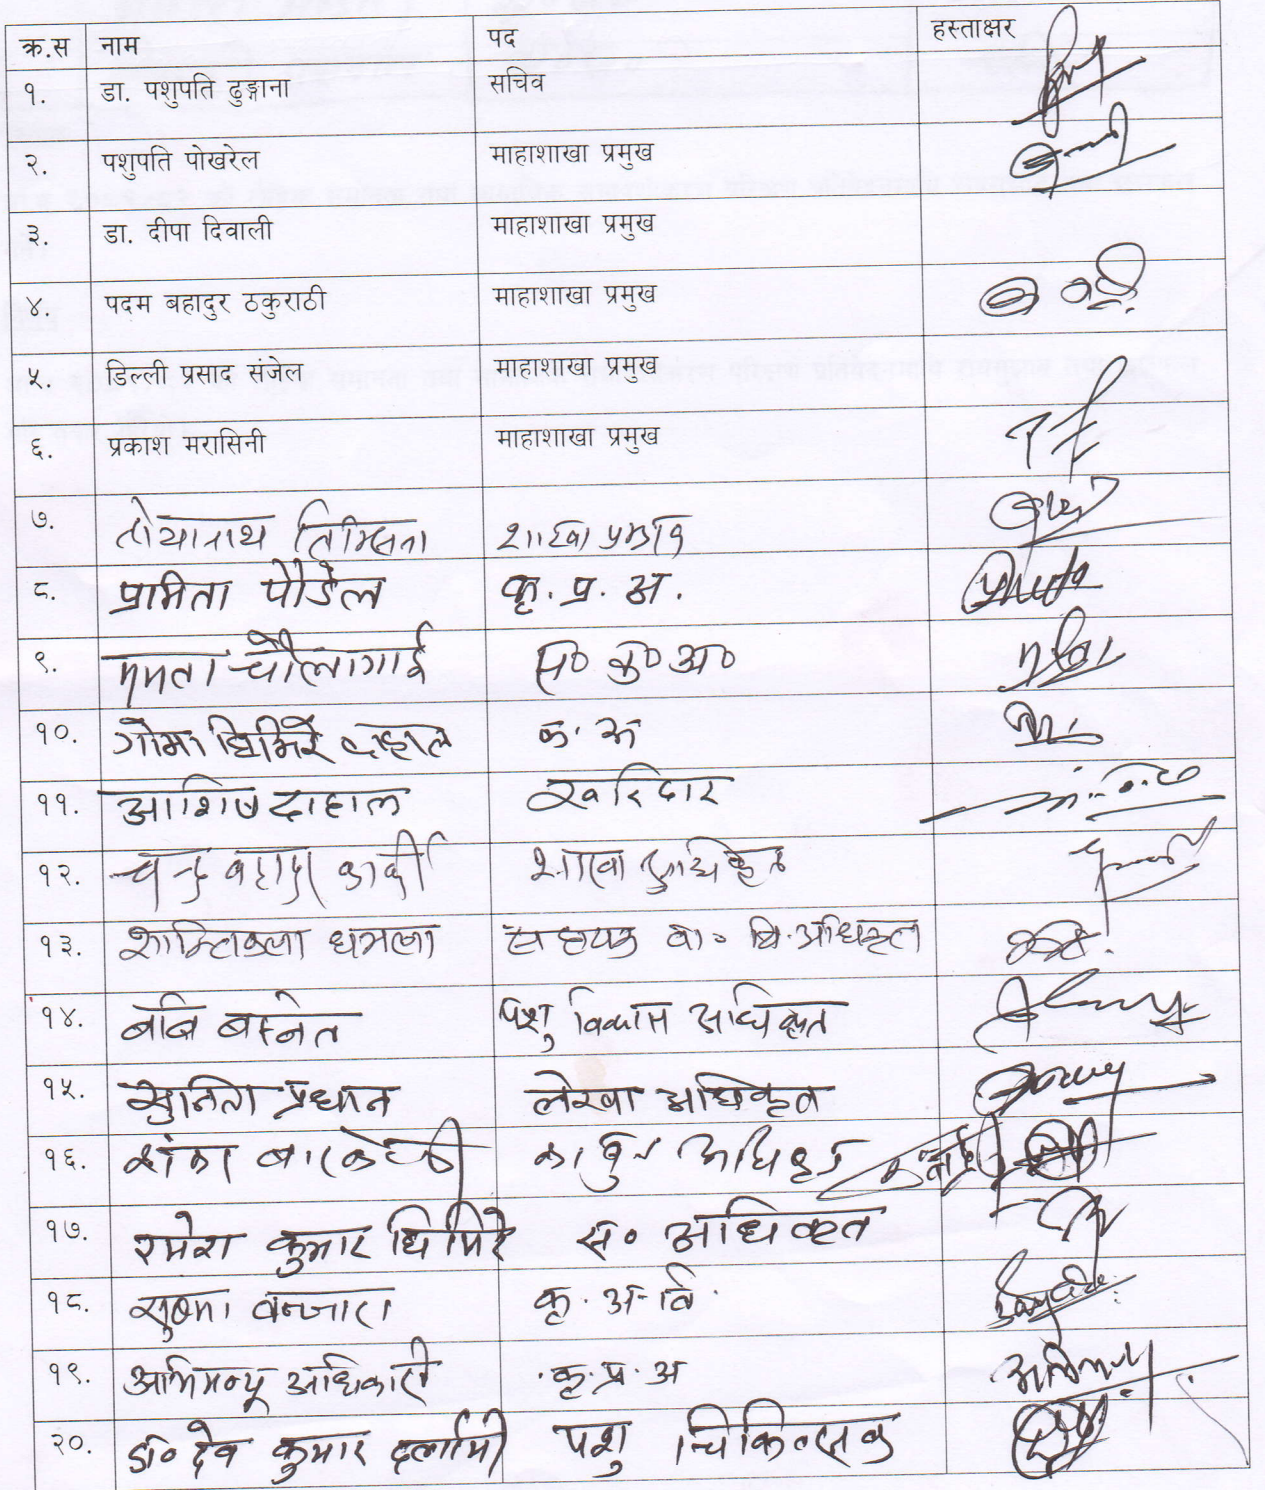 क्र.स नाम पद हस्ताक्षर
१. डा. पशुपति ढुङ्गाना सचिव
२. पशुपति पोखरेल माहाशाखा प्रमुख
३. डा. दीपा दिवाली माहाशाखा प्रमुख
४. पदम बहादुर ठकुराठी माहाशाखा प्रमुख
५. डिल्ली प्रसाद संजेल माहाशाखा प्रमुख
६. प्रकाश मरासिनी माहाशाखा प्रमुख
७. तोयानाथ तिम्सिना शाखा प्रमुख
८. प्रमिता पौडेल कृ. प्र. अ.
९. ममता चौलागाई
१०. गोमा घिमिरे दाहाल
११. आशिष दाहाल खरिदार
१२. शाखा अधिकृत
१३. शान्तिकला धमला सहायक वा॰ वि. अधिकृत
१४. बबि बस्नेत पशु विकास अधिकृत
१५. सुनिता प्रधान लेखा अधिकृत
१६. अधिकृत
१७. रमेश कुमार घिमिरे स॰ अधिकृत
१८. सुषमा बन्जारा कृ. अ. वि.
१९. अभिमन्यू अधिकारी कृ. प्र. अ
२०. डा॰ देव कुमार दर्लामी पशु चिकित्सक